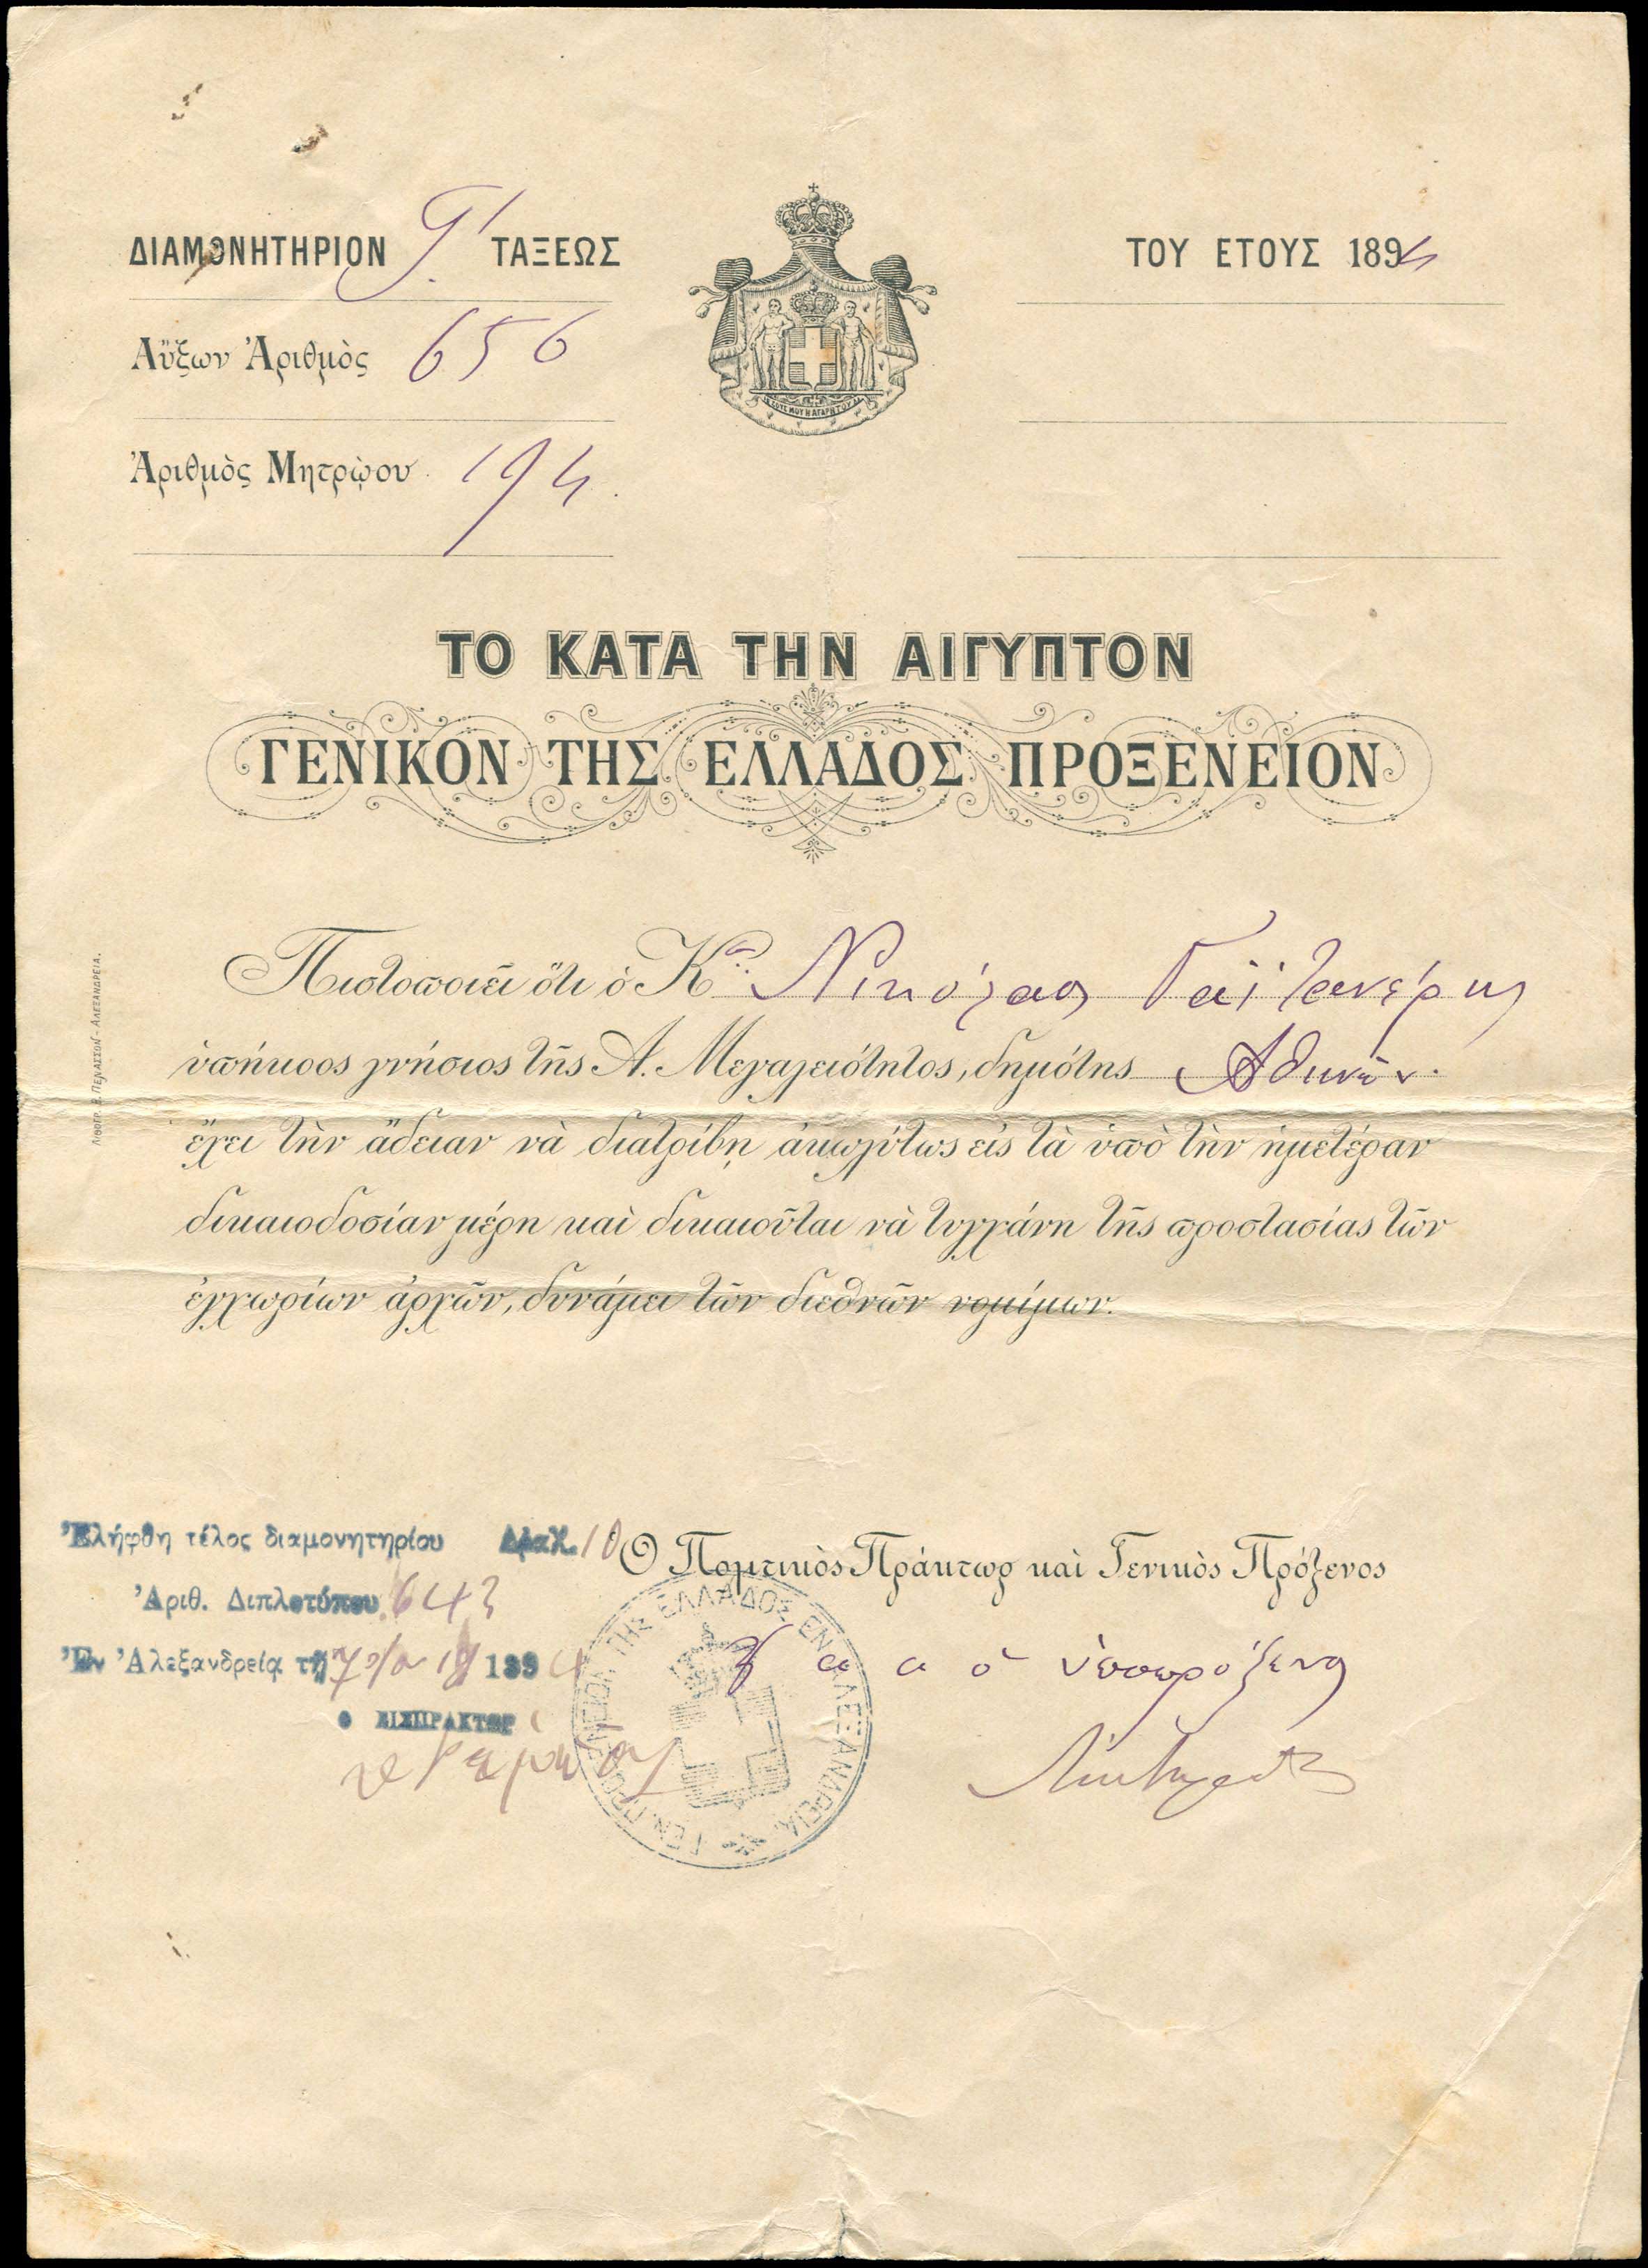 ΔΙΑΜΟΝΗΤΗΡΙΟΝ Γ'. ΤΑΞΕΩΣ
Αὔξων Ἀριθμὸς 656
Ἀριθμὸς Μητρῴου 194.
ΤΟΥ ΕΤΟΥΣ 1894
ΤΟ ΚΑΤΑ ΤΗΝ ΑΙΓΥΠΤΟΝ
ΓΕΝΙΚΟΝ ΤΗΣ ΕΛΛΑΔΟΣ ΠΡΟΞΕΝΕΙΟΝ
Πιστοποιεῖ ὅτι ὁ Κος Νικόλαος
ὑπήκοος γνήσιος τῆς Α. Μεγαλειότητος, δημότης Ἀθηνῶν.
ἔχει τὴν ἄδειαν νὰ διατρίβῃ ἀκωλύτως εἰς τὰ ὑπὸ τὴν ἡμετέραν
δικαιοδοσίαν μέρη καὶ δικαιοῦται νὰ τυγχάνη τῆς προστασίας τῶν
ἐγχωρίων ἀρχῶν, δυνάμει τῶν διεθνῶν νομίμων.
Ἐλήφθη τέλος διαμονητηρίου Δραχ. 10
Ἀριθ. Διπλοτύπου 643
Ἐν Ἀλεξανδρείᾳ τῇ 1894
Ο ΕΙΣΠΡΑΚΤΩΡ
Ὁ Πολιτικὸς Πράκτωρ καὶ Γενικὸς Πρόξενος
α α ὁ ὑποπρόξενος
ΓΕΝ. ΠΡΟΞΕΝΕΙΟΝ ΤΗΣ ΕΛΛΑΔΟΣ ΕΝ ΑΛΕΞΑΝΔΡΕΙΑ
ΛΙΘΟΓΡ. Β. ΠΕΝΑΣΣΟΝ - ΑΛΕΞΑΝΔΡΕΙΑ.